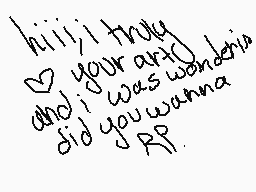 hiii, i truly
♡ your art
and i was wonderin
did you wanna
RP.